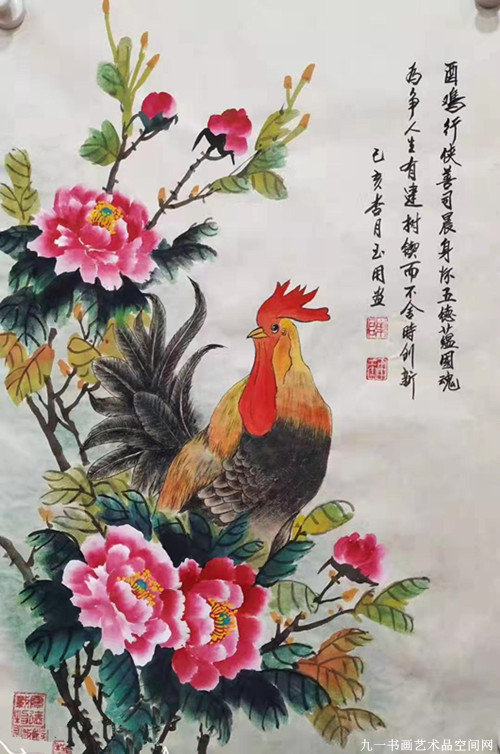 酉鸡行侠善司晨身怀五德蕴国魂
为争人生有建树锲而不舍时创新
己亥杏月玉国画
九一书画艺术品空间网